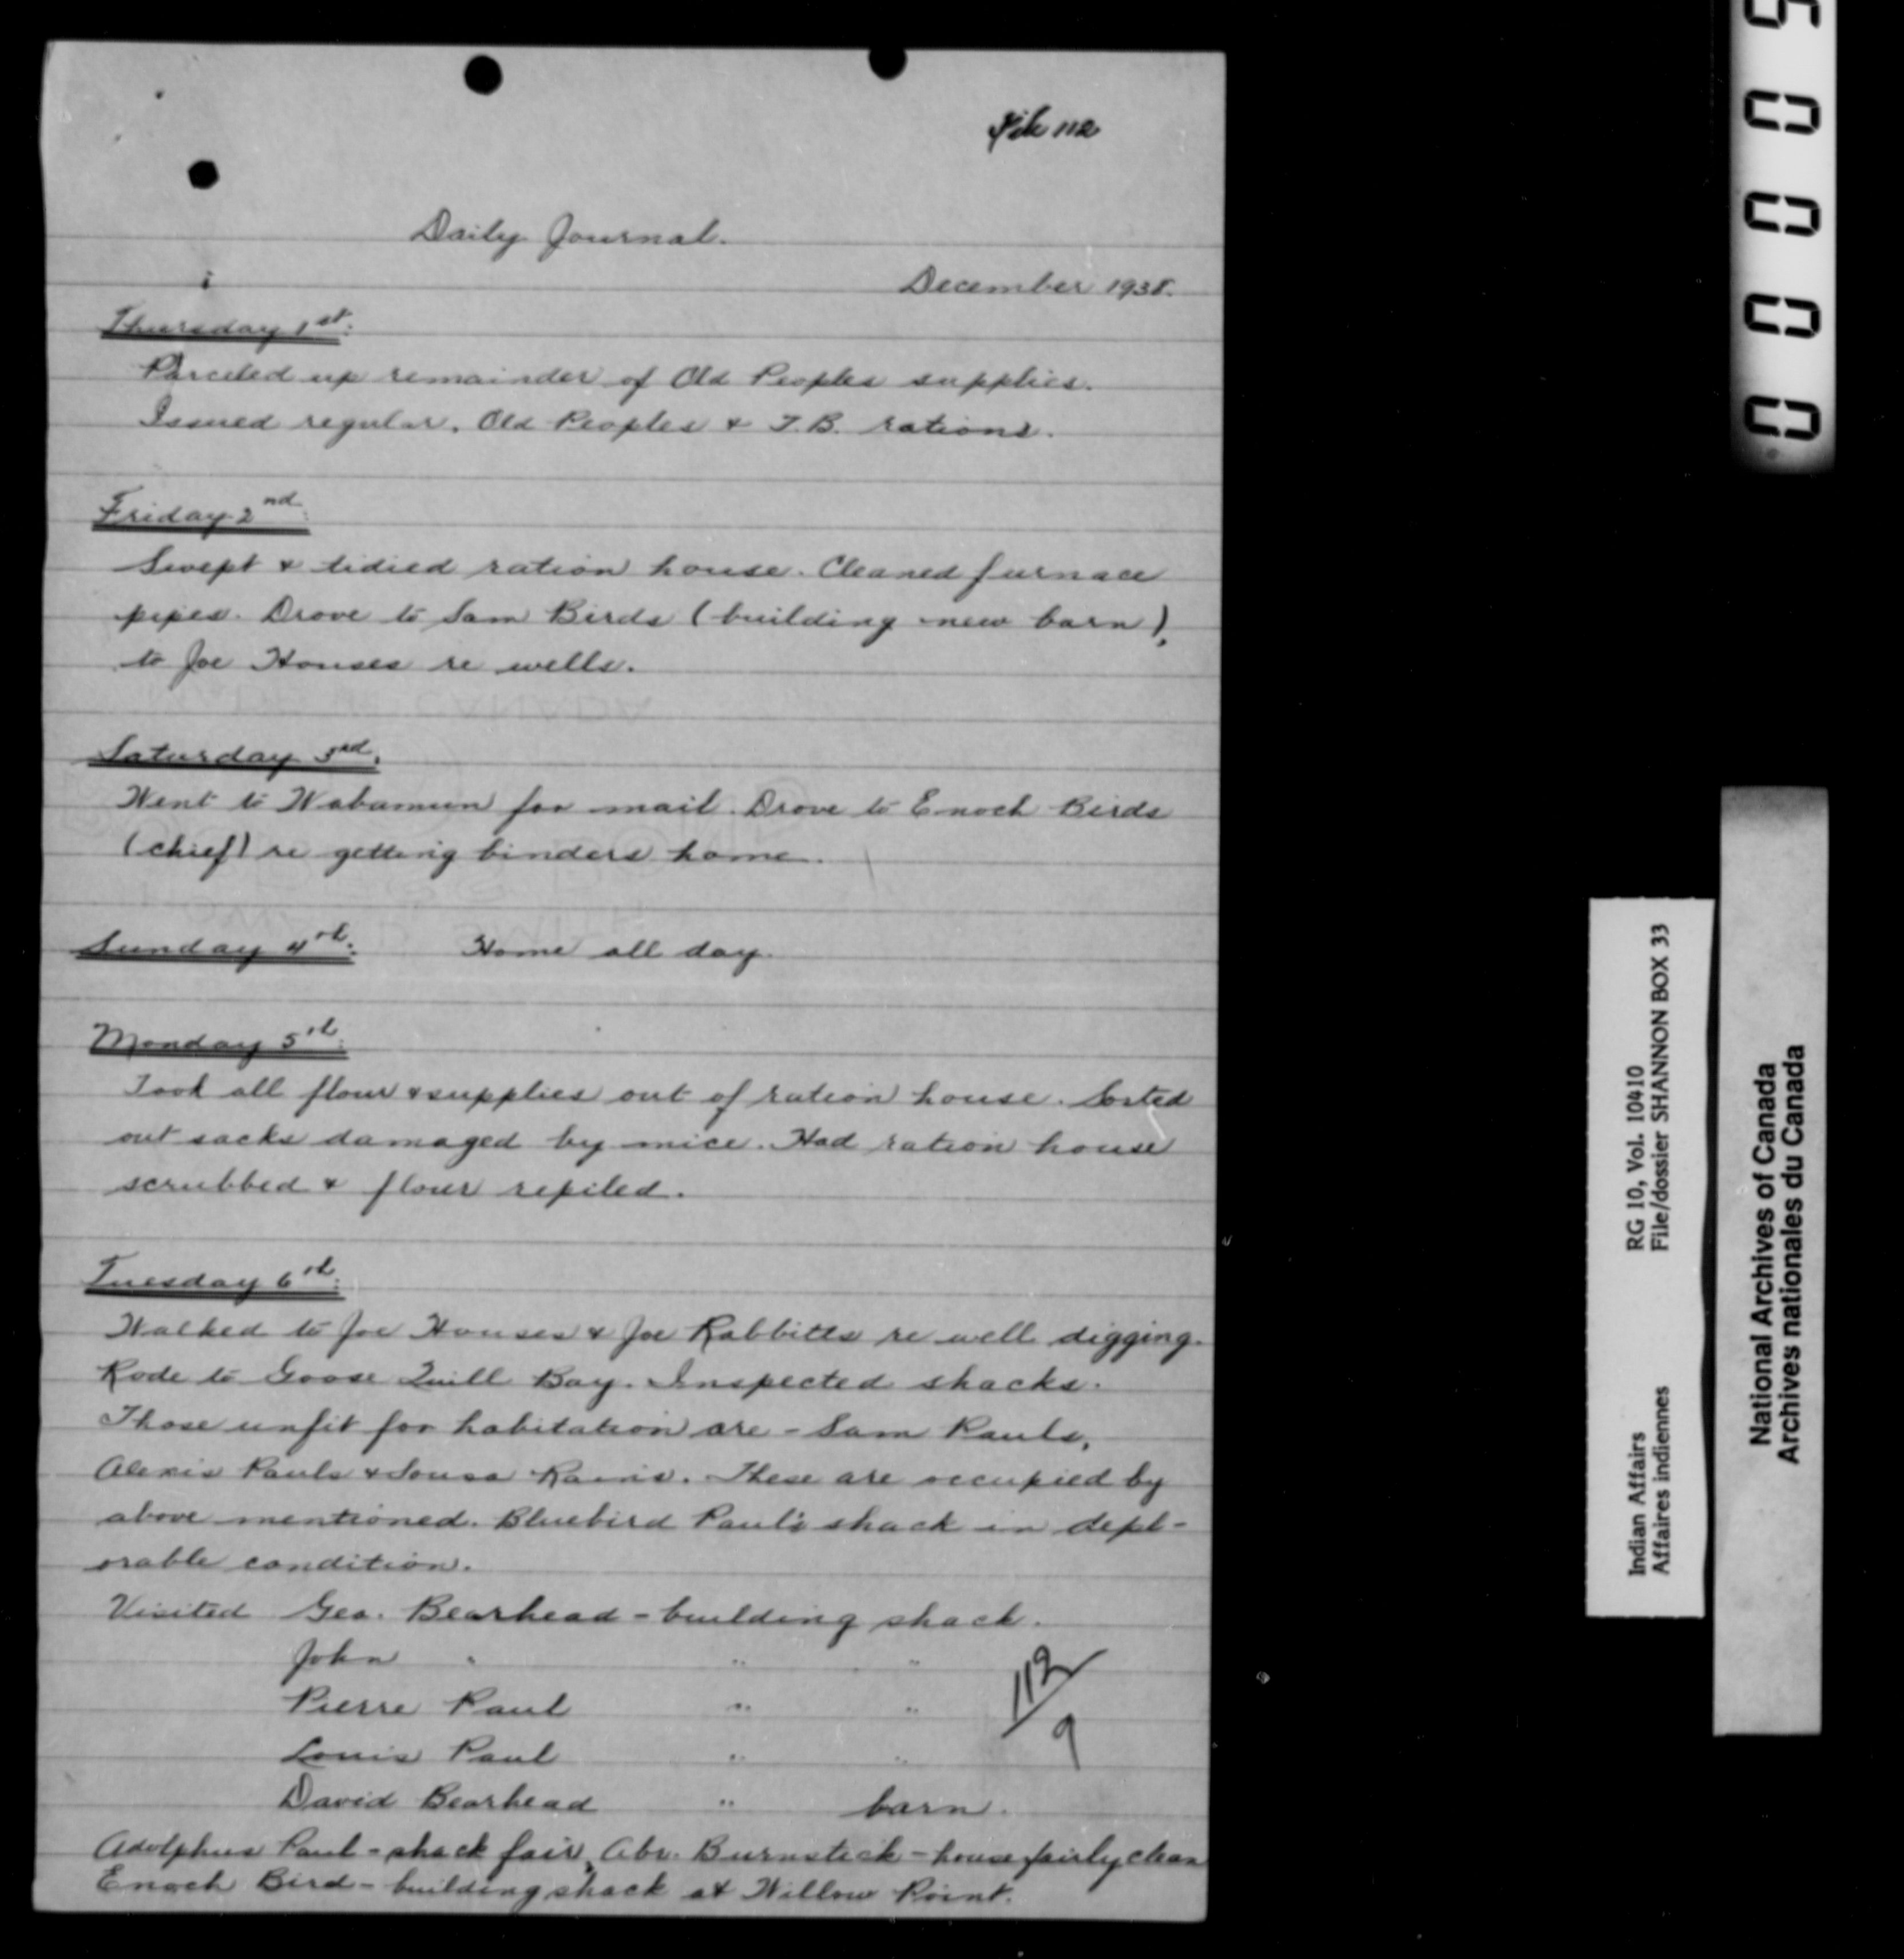 File 112
Daily Journal.
December 1938.
Thursday 1st:
Parceled up remainder of Old Peoples supplies.
Issued regular, Old Peoples & T.B. rations.
Friday 2nd:
Swept & tidied ration house. Cleaned furnace
pipes. Drove to Sam Birds (building new barn),
to Joe Houses re wells.
Saturday 3rd.
Went to Wabamun for mail. Drove to Enoch Birds
(chief) re getting binders home.
Sunday 4th: Home all day.
Monday 5th:
Took all flour & supplies out of ration house. Sorted
out sacks damaged by mice. Had ration house
scrubbed & flour repiled.
Tuesday 6th:
Walked to Joe Houses & Joe Rabbitts re well digging.
Rode to Goose Quill Bay. Inspected shacks.
Those unfit for habitation are - Sam Pauls,
Alexis Pauls & Rains. These are occupied by
above mentioned. Bluebird Paul's shack in depl-
orable condition.
Visited Geo. Bearhead - building shack.
John " " "
Pierre Paul " "
Louis Paul " "
David Bearhead " barn.
112/9
Adolphus Paul - shack fair, Abr. Burnstick - house fairly clean
Enoch Bird - building shack at Willow Point.
Indian Affairs RG 10, Vol. 10410
Affaires indiennes File/dossier SHANNON BOX 33
National Archives of Canada
Archives nationales du Canada